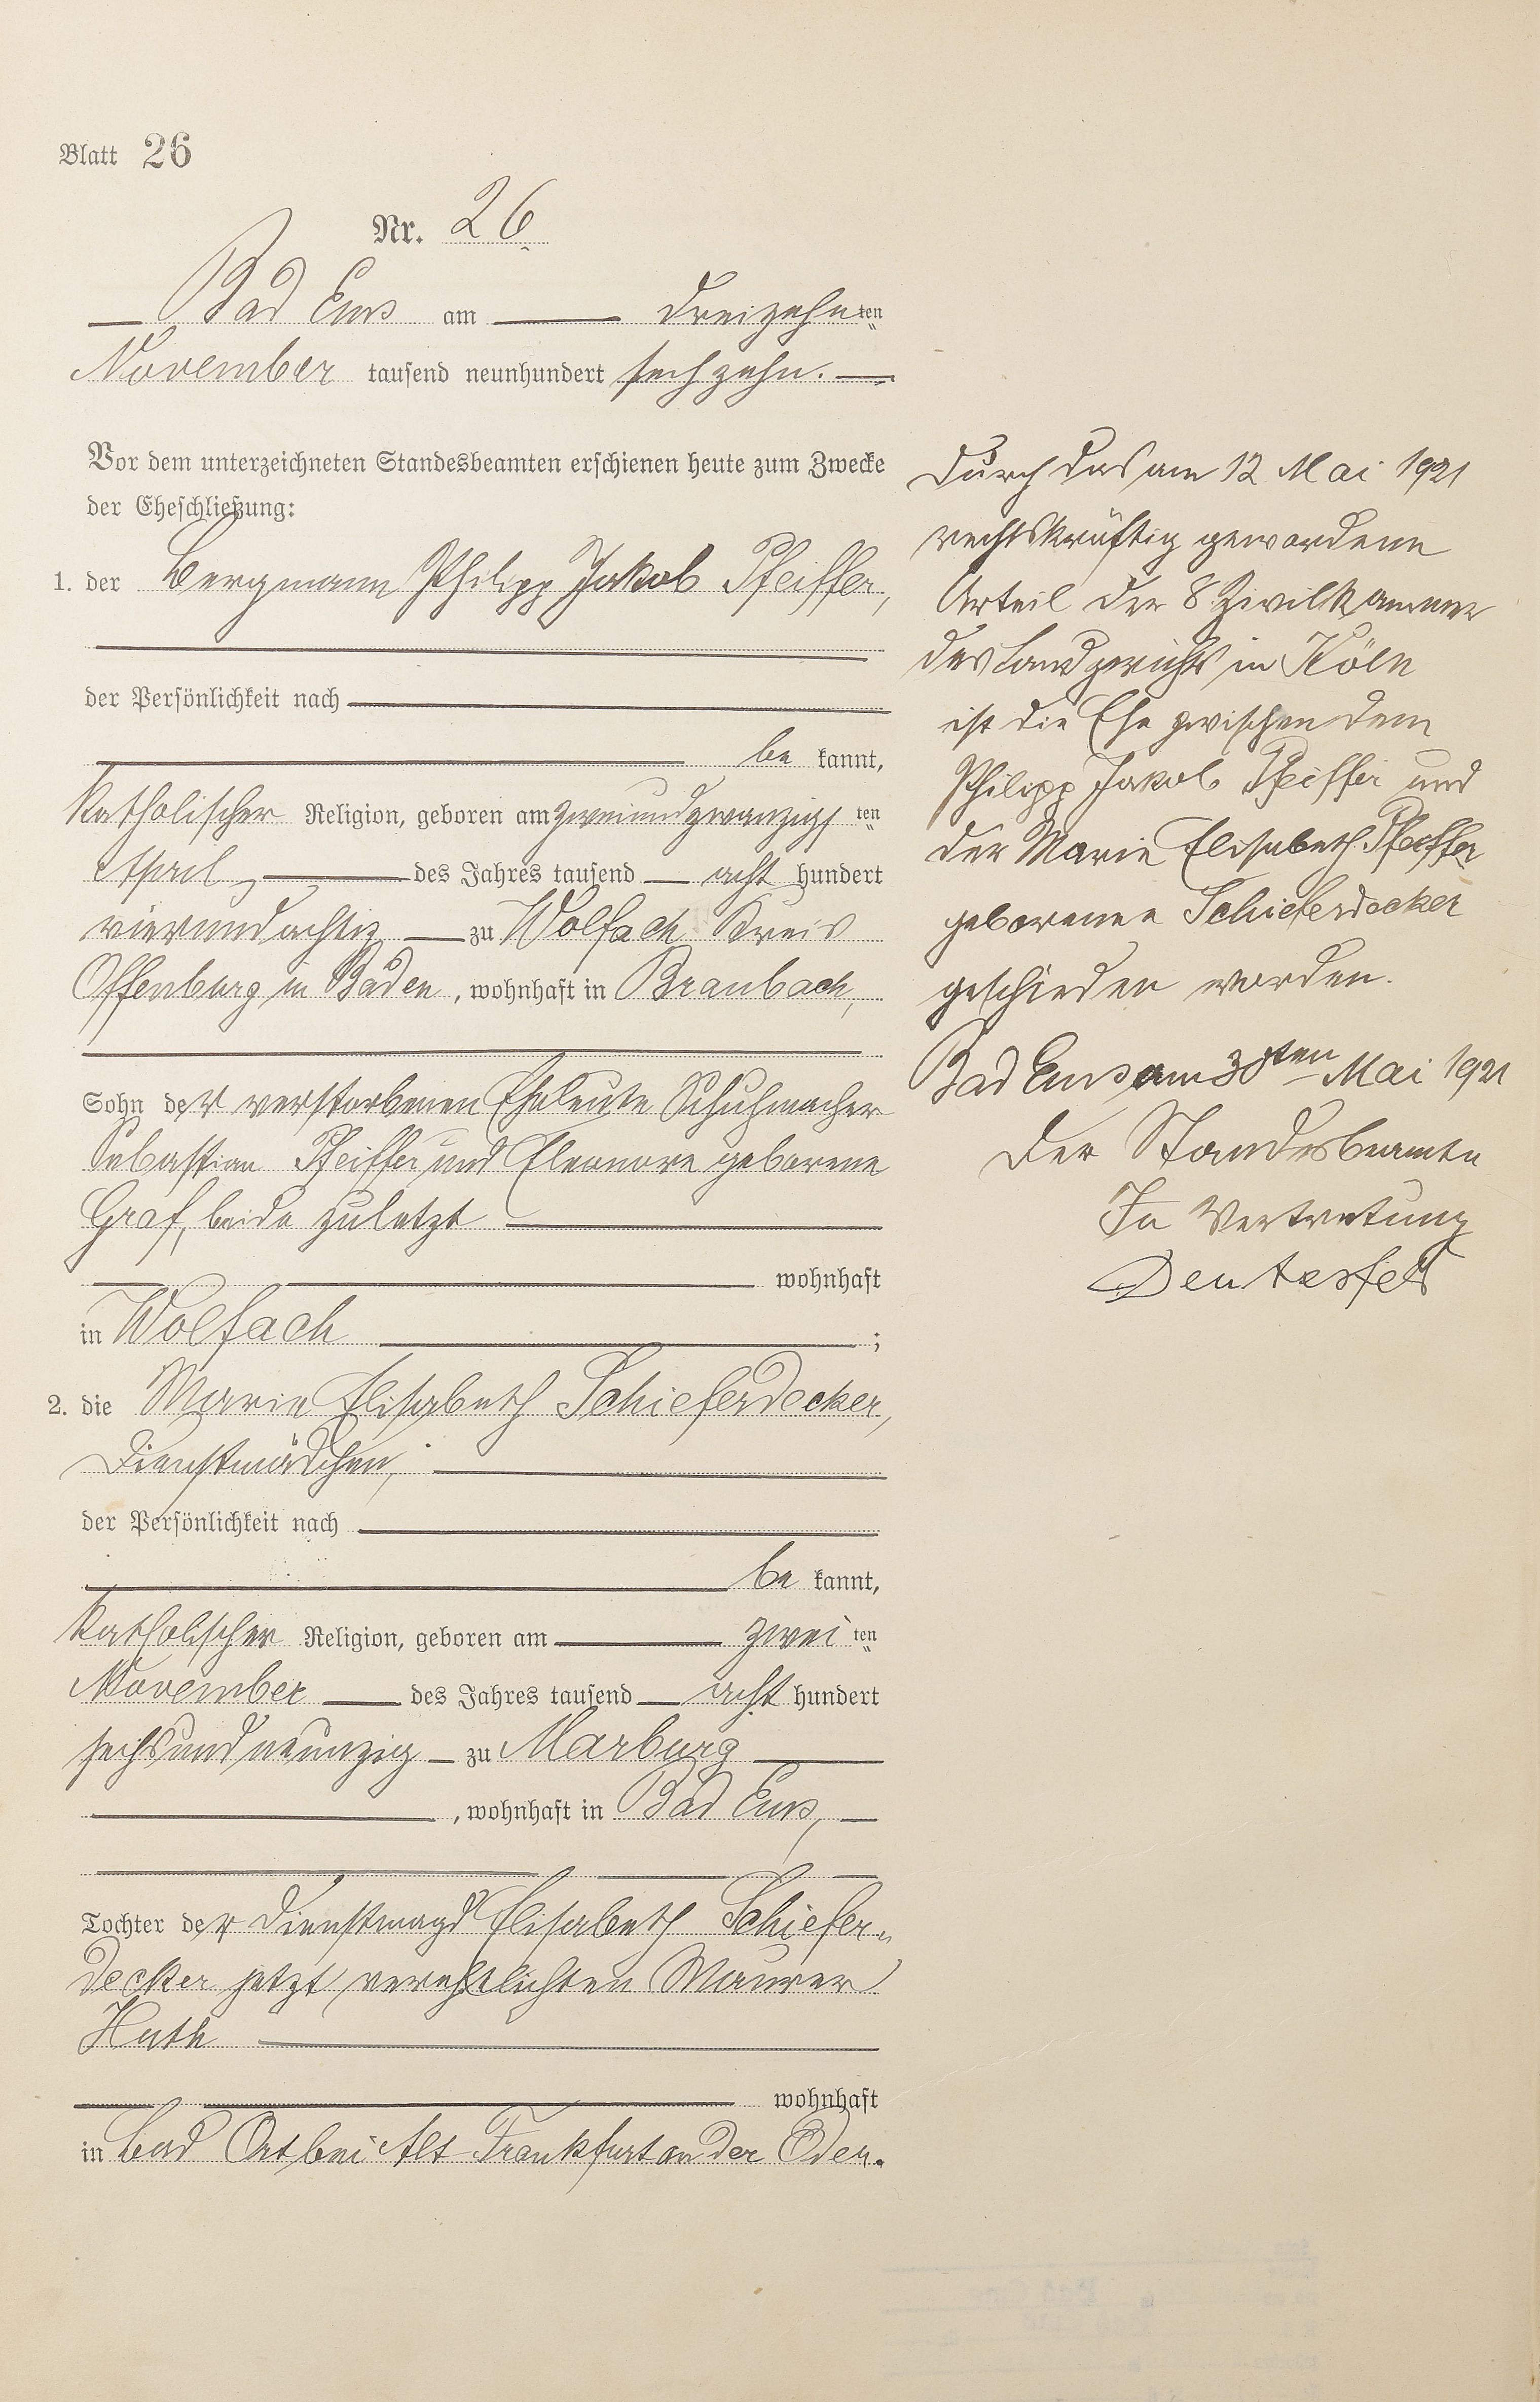 Blatt 26
Nr. 26
Bad Ems am dreizehnten
November tausend neunhundert sechzehn.
Vor dem unterzeichneten Standesbeamten erschienen heute zum Zwecke
der Eheschließung:
1. der Bergmann Philipp Jakob Pfeiffer,
der Persönlichkeit nach
be kannt,
katholischer Religion, geboren am zweiundzwanzigsten
April des Jahres tausend acht hundert
vierundachtzig zu Wolfach Kreis
Offenburg in Baden, wohnhaft in Braubach,
Sohn der verstorbenen Eheleute Schuhmacher
Sebastian Pfeiffer und Eleonore geborene
Graf, beide zuletzt
wohnhaft
in Wolfach;
2. die Marie Elisabeth Schieferdecker,
Dienstmädchen,
der Persönlichkeit nach
be kannt,
katholischer Religion, geboren am zweiten
November des Jahres tausend acht hundert
sechsundneunzig zu Marburg
, wohnhaft in Bad Ems,
Tochter der Dienstmagd Elisabeth Schiefer-
decker jetzt verehelichten Maurer
Huth
wohnhaft
in bei Alt Frankfurt an der Oder.
Durch das am 12 Mai 1921
rechtskräftig gewordene
Urteil der 8 Zivilkammer
des Landgerichts in Köln
ist die Ehe zwischen dem
Philipp Jakob Pfeiffer und
der Marie Elisabeth Pfeiffer
geborenen Schieferdecker
geschieden worden.
Bad Ems am 30ten Mai 1921
Der Standesbeamte
In Vertretung